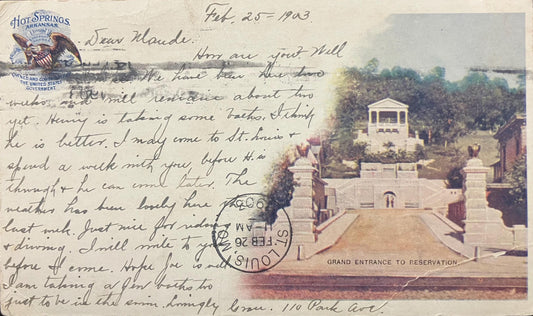 HOT SPRINGS,
ARKANSAS.
OWNED AND CONTROLLED BY
THE UNITED STATES
GOVERNMENT.
Feb, 25 - 1903
Dear Maude.
How are you? Well
We have been here two
weeks and will remain about two
yet. Henry is taking some baths. I think
he is better. I may come to St. Louis &
spend a week with you, before H. is
through & he can come later. The
weather has been lovely here the
last week. Just nice for riding
& driving. I will write to you
before I come. Hope is well
I am taking a few baths too
just to be in the swim. Lovingly 110 Park Ave.
ST. LOUIS MO.
FEB 26
11-AM
1903
GRAND ENTRANCE TO RESERVATION.